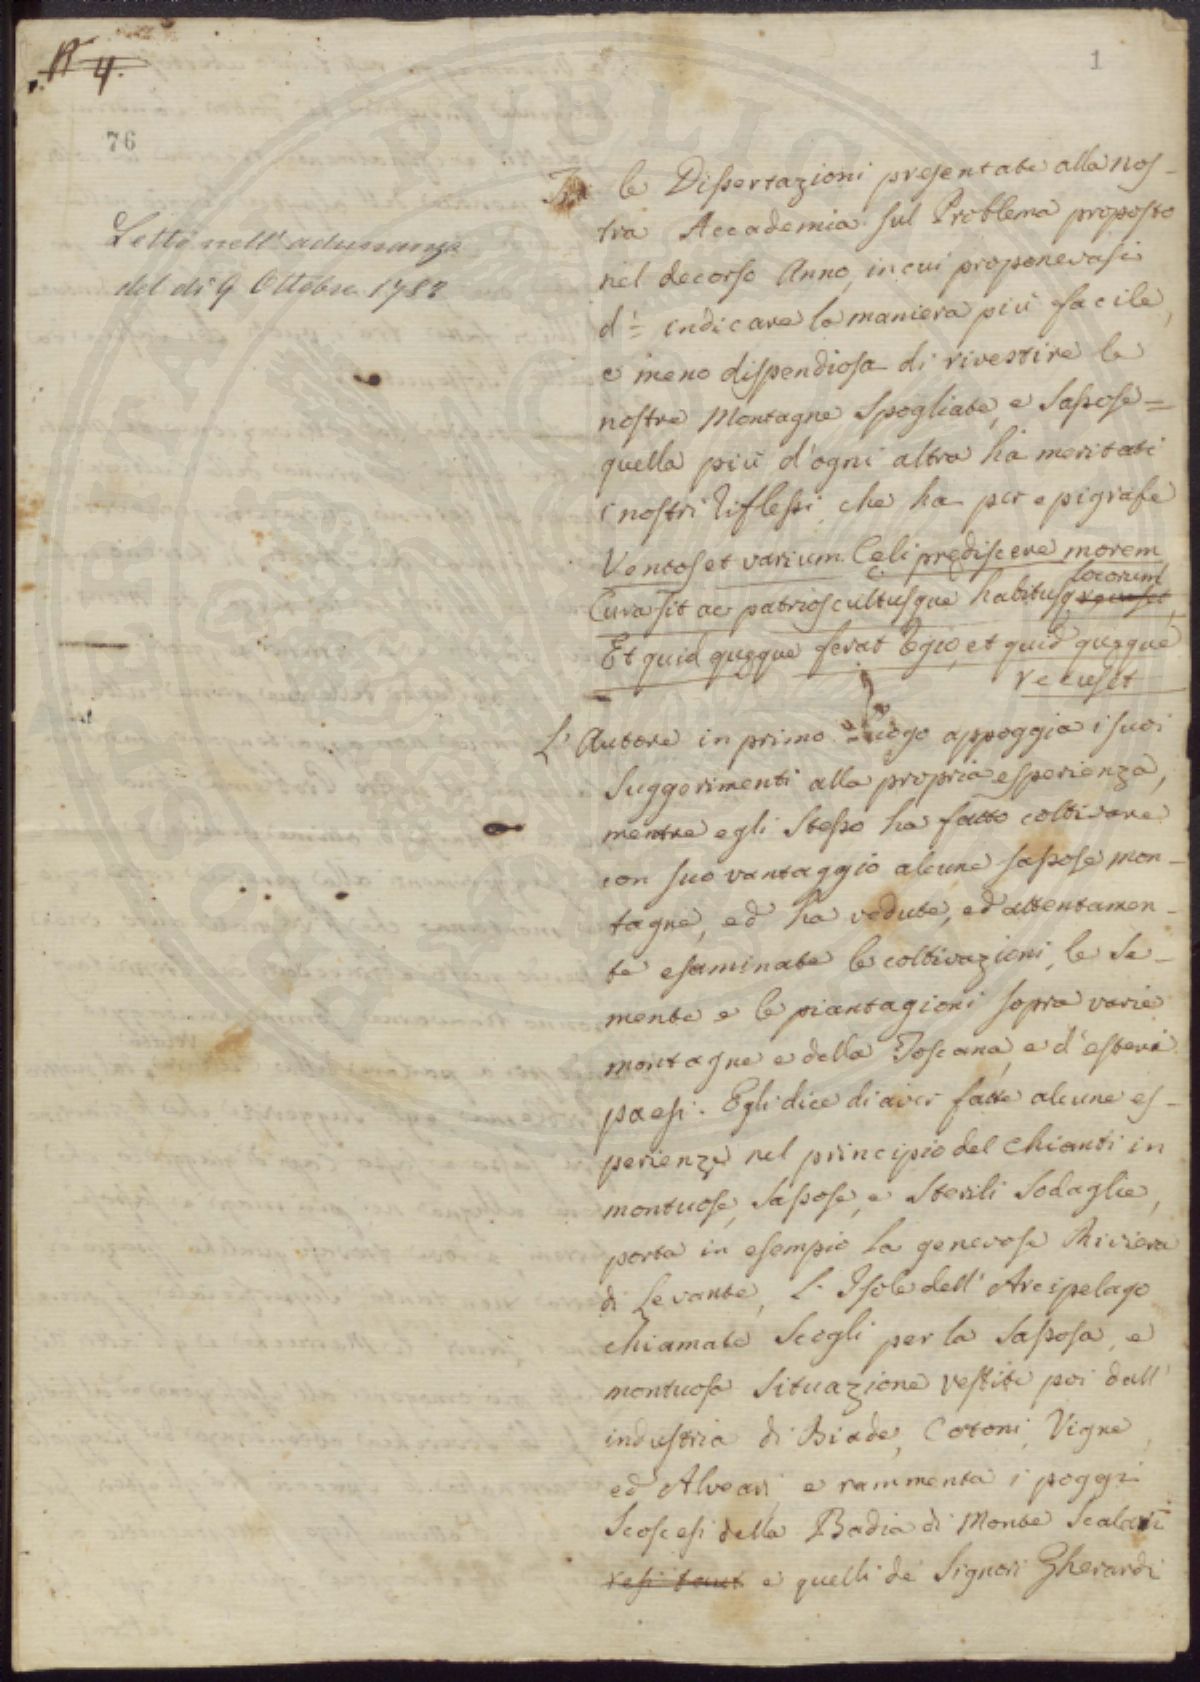 N 4.
1
76
Letto nell'adunanza
del dì 9 Ottobre 1788
Tra le Dissertazioni presentate alla nos-
tra Accademia sul Problema proposto
nel decorso Anno, in cui proponevasi
d'= indicare la maniera più facile,
e meno dispendiosa di rivestire le
nostre Montagne Spogliate, e Sassose=
quella più d'ogni altra ha meritati
i nostri riflessi, che ha per epigrafe
Ventos et varium Celi prediscere morem
Cura sit ac patrios cultusque habitusq recuset locorum
Et quid queque ferat regio, et quid queque
recuset
L'Autore in primo luogo appoggia i suoi
suggerimenti alla propria esperienza,
mentre egli stesso ha fatto coltivare
con suo vantaggio alcune sassose mon-
tagne, ed ha vedute, ed attentamen-
te esaminate le coltivazioni, le se-
mente e le piantagioni sopra varie
montagne e della Toscana, e d'esteri
paesi. Egli dice di aver fatte alcune es-
perienze nel principio del Chianti in
montuose, sassose, e sterili sodaglie,
porta in esempio la genovese Riviera
di Levante, L'Isole dell'Arcipelago
chiamate Scogli per la sassosa, e
montuosa situazione vestite poi dall'
industria di Biade, Cotoni, Vigne,
ed Alveari, e rammenta i poggi
scoscesi della Badia di Monte Scalari
resi tant e quelli de Signori Gherardi